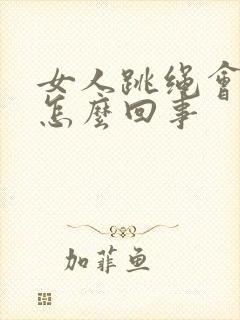 女人跳绳會
怎麼回事
加菲鱼